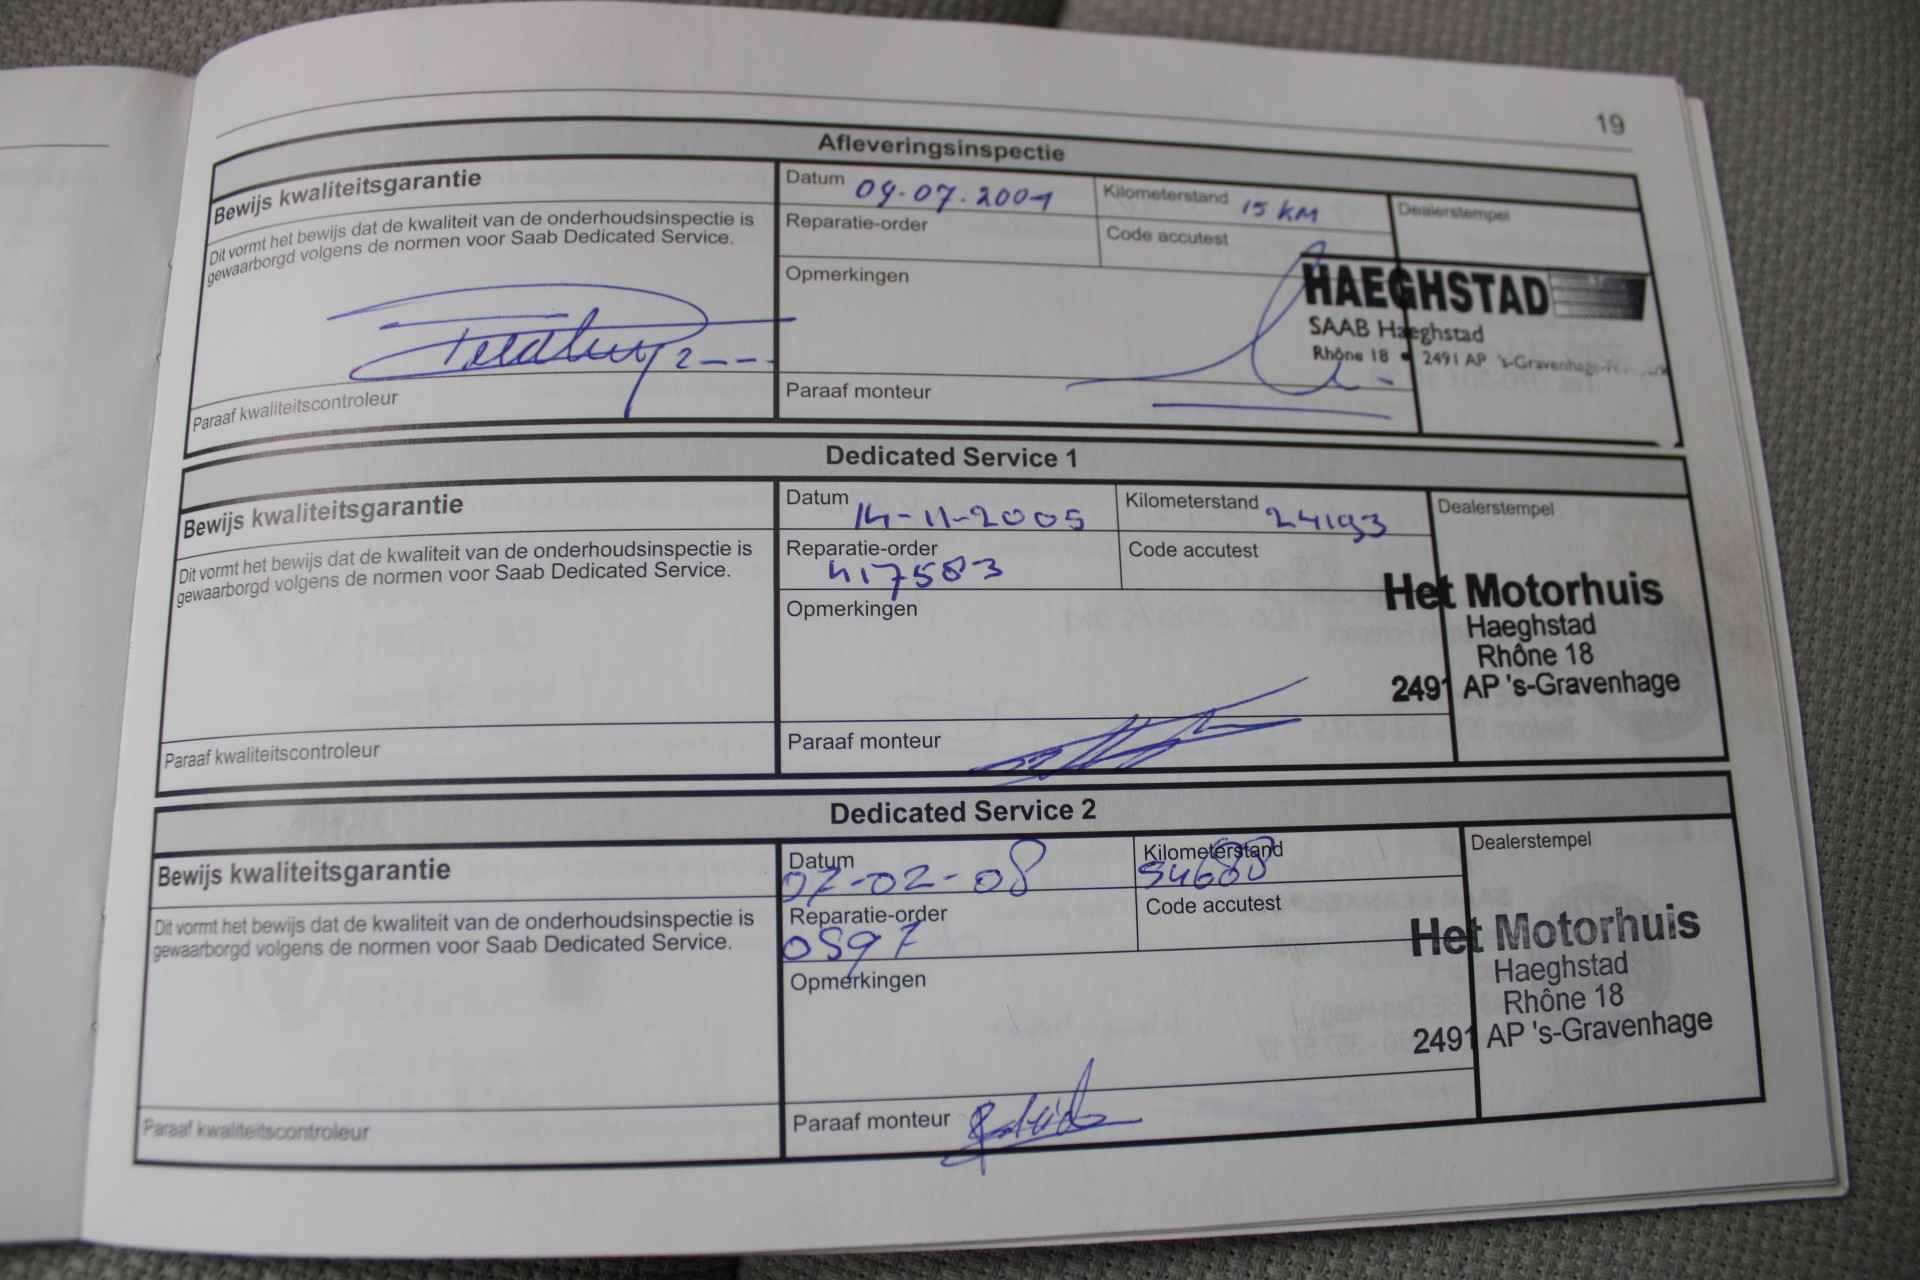 19
Afleveringsinspectie
Bewijs kwaliteitsgarantie
Dit vormt het bewijs dat de kwaliteit van de onderhoudsinspectie is
gewaarborgd volgens de normen voor Saab Dedicated Service.
Paraaf kwaliteitscontroleur
Datum 09.07.2001
Kilometerstand 15 KM
Reparatie-order
Code accutest
Opmerkingen
Paraaf monteur
Dealerstempel
HAEGHSTAD
SAAB Haeghstad
Rhône 18 • 2491 AP 's-Gravenhage
Dedicated Service 1
Bewijs kwaliteitsgarantie
Dit vormt het bewijs dat de kwaliteit van de onderhoudsinspectie is
gewaarborgd volgens de normen voor Saab Dedicated Service.
Paraaf kwaliteitscontroleur
Datum 14-11-2005
Kilometerstand 24193
Reparatie-order 417583
Code accutest
Opmerkingen
Paraaf monteur
Dealerstempel
Het Motorhuis
Haeghstad
Rhône 18
2491 AP 's-Gravenhage
Dedicated Service 2
Bewijs kwaliteitsgarantie
Dit vormt het bewijs dat de kwaliteit van de onderhoudsinspectie is
gewaarborgd volgens de normen voor Saab Dedicated Service.
Paraaf kwaliteitscontroleur
Datum 07-02-08
Kilometerstand 34688
Reparatie-order 0597
Code accutest
Opmerkingen
Paraaf monteur
Dealerstempel
Het Motorhuis
Haeghstad
Rhône 18
2491 AP 's-Gravenhage